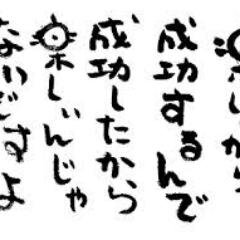 楽しいから
成功するんで
成功したから
楽しいんじゃ
ないですよ